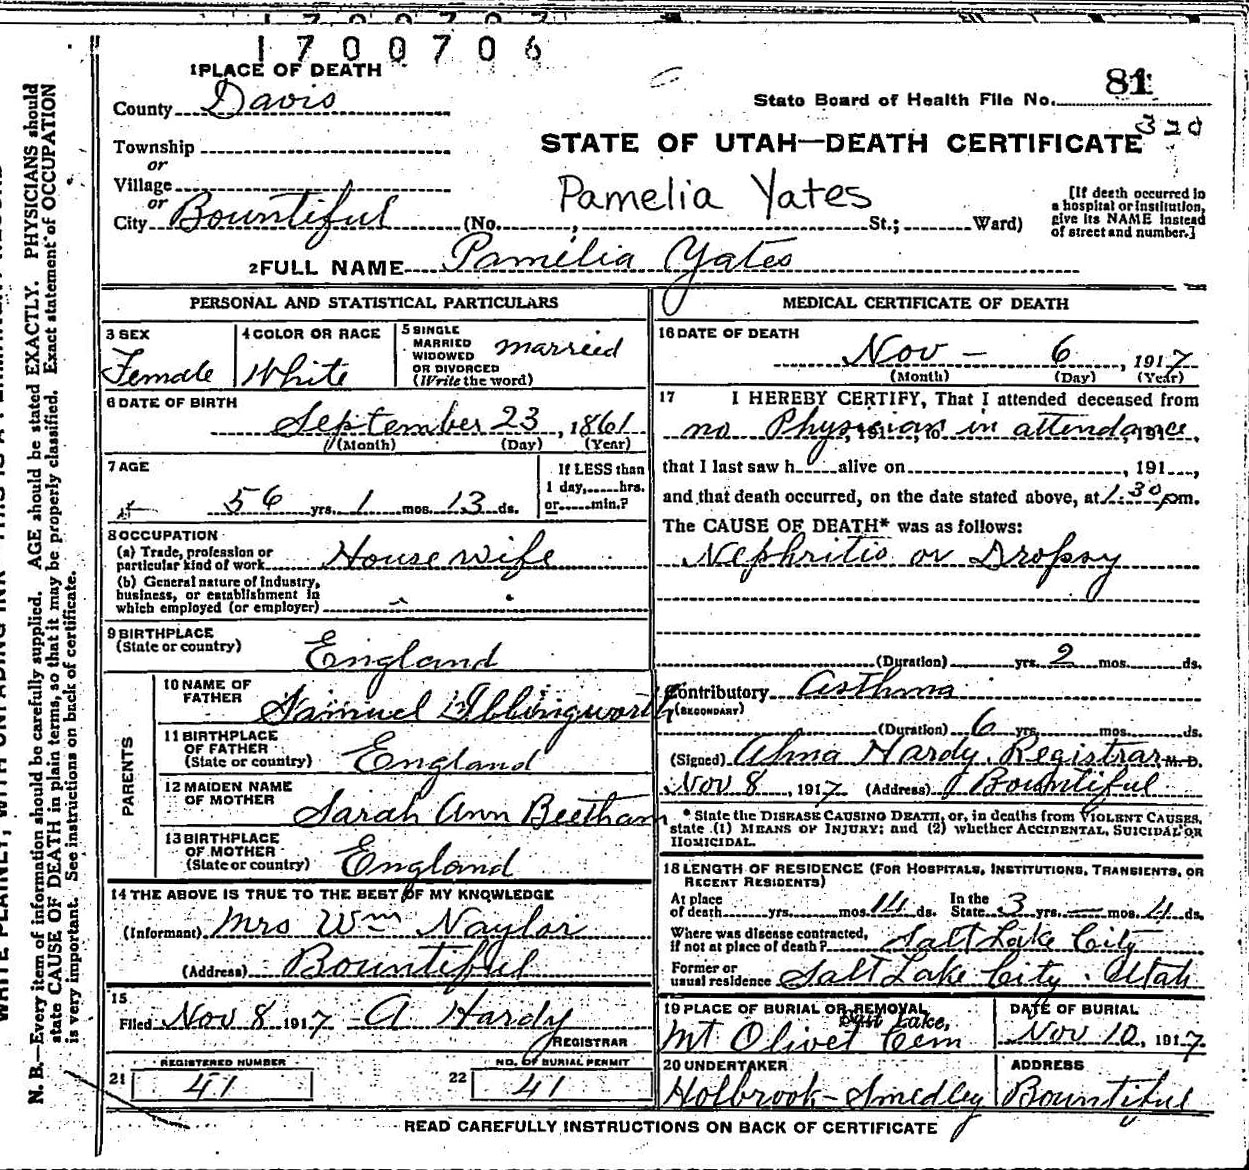 1700706
1 PLACE OF DEATH
County Davis
State Board of Health File No. 81
320
Township
or
Village
or
City Bountiful (No. , St.; Ward)
STATE OF UTAH—DEATH CERTIFICATE
Pamelia Yates
[If death occurred in
a hospital or institution,
give its NAME instead
of street and number.]
2 FULL NAME Pamelia Yates
PERSONAL AND STATISTICAL PARTICULARS
3 SEX
Female
4 COLOR OR RACE
White
5 SINGLE
MARRIED
WIDOWED
OR DIVORCED
(Write the word)
married
6 DATE OF BIRTH
September 23, 1861
(Month) (Day) (Year)
7 AGE
56 yrs. 1 mos. 13 ds.
If LESS than
1 day, hrs.
or min.?
8 OCCUPATION
(a) Trade, profession or
particular kind of work House wife
(b) General nature of Industry,
business, or establishment in
which employed (or employer)
9 BIRTHPLACE
(State or country) England
PARENTS
10 NAME OF
FATHER Samuel Illingworth
11 BIRTHPLACE
OF FATHER
(State or country) England
12 MAIDEN NAME
OF MOTHER Sarah Ann Beetham
13 BIRTHPLACE
OF MOTHER
(State or country) England
14 THE ABOVE IS TRUE TO THE BEST OF MY KNOWLEDGE
(Informant) Mrs Wm Naylor
(Address) Bountiful
15
Filed Nov 8 1917 A Hardy
REGISTRAR
21 REGISTERED NUMBER
41
22 NO. OF BURIAL PERMIT
41
MEDICAL CERTIFICATE OF DEATH
16 DATE OF DEATH
Nov — 6, 1917
(Month) (Day) (Year)
17 I HEREBY CERTIFY, That I attended deceased from
no Physician in attendance,
that I last saw h alive on , 191 ,
and that death occurred, on the date stated above, at 1.30 pm.
The CAUSE OF DEATH* was as follows:
Nephritis or Dropsy
(Duration) yrs. 2 mos. ds.
Contributory Asthma
(SECONDARY)
(Duration) 6 yrs. mos. ds.
(Signed) Alma Hardy, Registrar M. D.
Nov 8, 1917 (Address) Bountiful
* State the DISEASE CAUSING DEATH, or, in deaths from VIOLENT CAUSES,
state (1) MEANS OF INJURY; and (2) whether ACCIDENTAL, SUICIDAL OR
HOMICIDAL.
18 LENGTH OF RESIDENCE (FOR HOSPITALS, INSTITUTIONS, TRANSIENTS, OR
RECENT RESIDENTS)
At place
of death yrs. mos. 14 ds. In the
State 3 yrs. — mos. 4 ds.
Where was disease contracted,
if not at place of death? Salt Lake City
Former or
usual residence Salt Lake City. Utah
19 PLACE OF BURIAL OR REMOVAL
Salt Lake,
Mt Olivet Cem
DATE OF BURIAL
Nov 10, 1917
20 UNDERTAKER
Holbrook – Smedley
ADDRESS
Bountiful
READ CAREFULLY INSTRUCTIONS ON BACK OF CERTIFICATE
N. B.—Every item of information should be carefully supplied. AGE should be stated EXACTLY. PHYSICIANS should
state CAUSE OF DEATH in plain terms, so that it may be properly classified. Exact statement of OCCUPATION
is very important. See instructions on back of certificate.